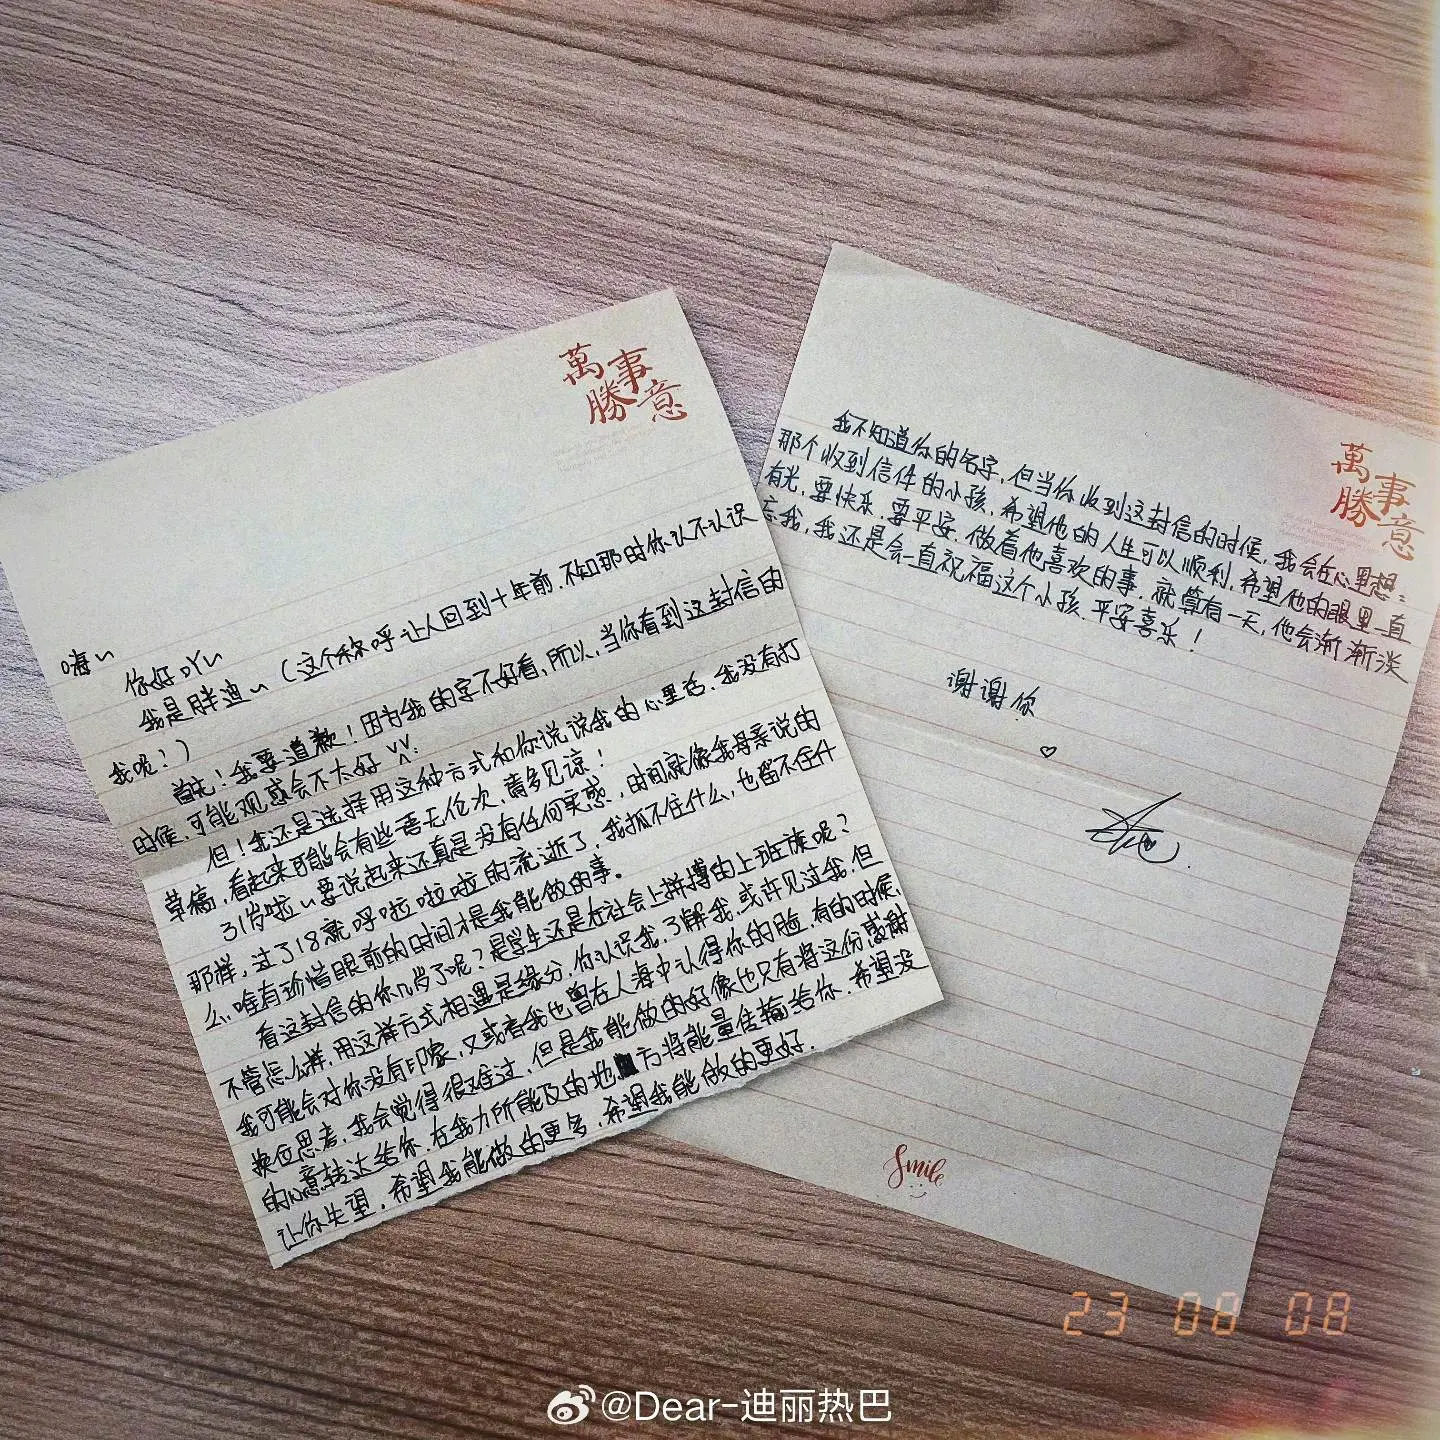 萬事
勝意
嗨~
你好吖~
我是胖迪~(这个称呼让人回到十年前.不知那时你认不认识
我呢?)
首先!我要道歉!因为我的字不好看,所以,当你看到这封信的
时候,可能观感会不太好
但!我还是选择用这种方式和你说说我的心里话.我没有打
草稿,看起来可能会有些语无伦次,请多见谅!
31岁啦~要说起来还真是没有任何实感,时间就像我母亲说的
那样,过了18就呼啦啦啦的流逝了,我抓不住什么,也留不住什
么,唯有珍惜眼前的时间才是我能做的事。
看这封信的你几岁了呢?是学生还是在社会上拼搏的上班族呢?
不管怎么样,用这样方式相遇是缘分,你认识我,了解我,或许见过我,但
我可能会对你没有印象,又或者我也曾在人海中认得你的脸,有的时候,
换位思考,我会觉得很难过,但是我能做的好像也只有将这份感谢
的心意转达给你.在我力所能及的地方将能量传输给你.希望没
让你失望,希望我能做的更多,希望我能做的更好.
萬事
勝意
我不知道你的名字,但当你收到这封信的时候,我会在心里想:
那个收到信件的小孩,希望他的人生可以顺利,希望他的眼里一直
有光,要快乐,要平安.做着他喜欢的事.就算有一天,他会渐渐淡
忘我,我还是会一直祝福这个小孩.平安喜乐!
谢谢你
Smile
23 08 08
@Dear-迪丽热巴